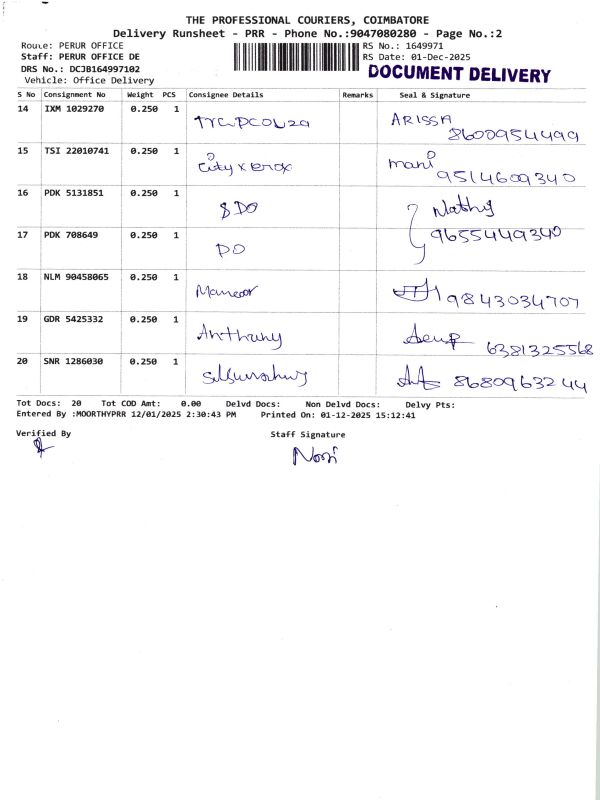 THE PROFESSIONAL COURIERS, COIMBATORE
Delivery Runsheet - PRR - Phone No.:9047080280 - Page No.:2
Route: PERUR OFFICE
RS No.: 1649971
Staff: PERUR OFFICE DE
RS Date: 01-Dec-2025
DRS No.: DCJB164997102
DOCUMENT DELIVERY
Vehicle: Office Delivery
S No Consignment No Weight PCS Consignee Details Remarks Seal & Signature
14 IXM 1029270 0.250 1 ARISSA
8600954499
15 TSI 22010741 0.250 1 City xerox mani
9514609340
16 PDK 5131851 0.250 1 SDO Nathy
17 PDK 708649 0.250 1 DO 9655449340
18 NLM 90458065 0.250 1 9843034707
19 GDR 5425332 0.250 1 Anthany 6381325568
20 SNR 1286030 0.250 1 8680963244
Tot Docs: 20 Tot COD Amt: 0.00 Delvd Docs: Non Delvd Docs: Delvy Pts:
Entered By :MOORTHYPRR 12/01/2025 2:30:43 PM Printed On: 01-12-2025 15:12:41
Verified By Staff Signature